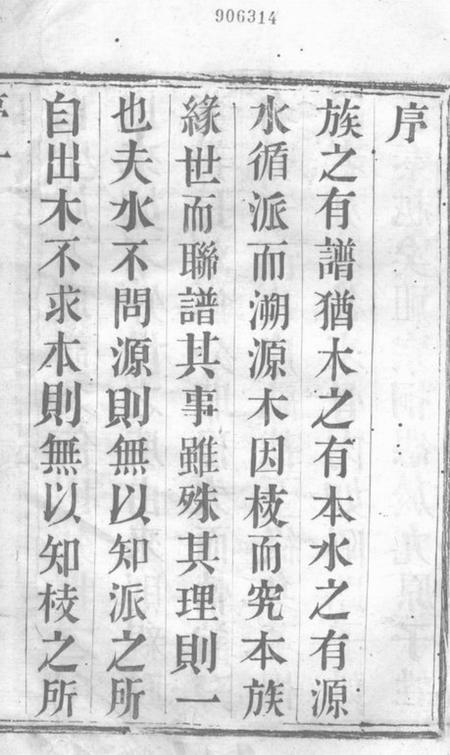 906314
序
族之有譜猶木之有本水之有源
水循派而溯源木因枝而究本族
緣世而聯譜其事雖殊其理則一
也夫水不問源則無以知派之所
自出木不求本則無以知枝之所